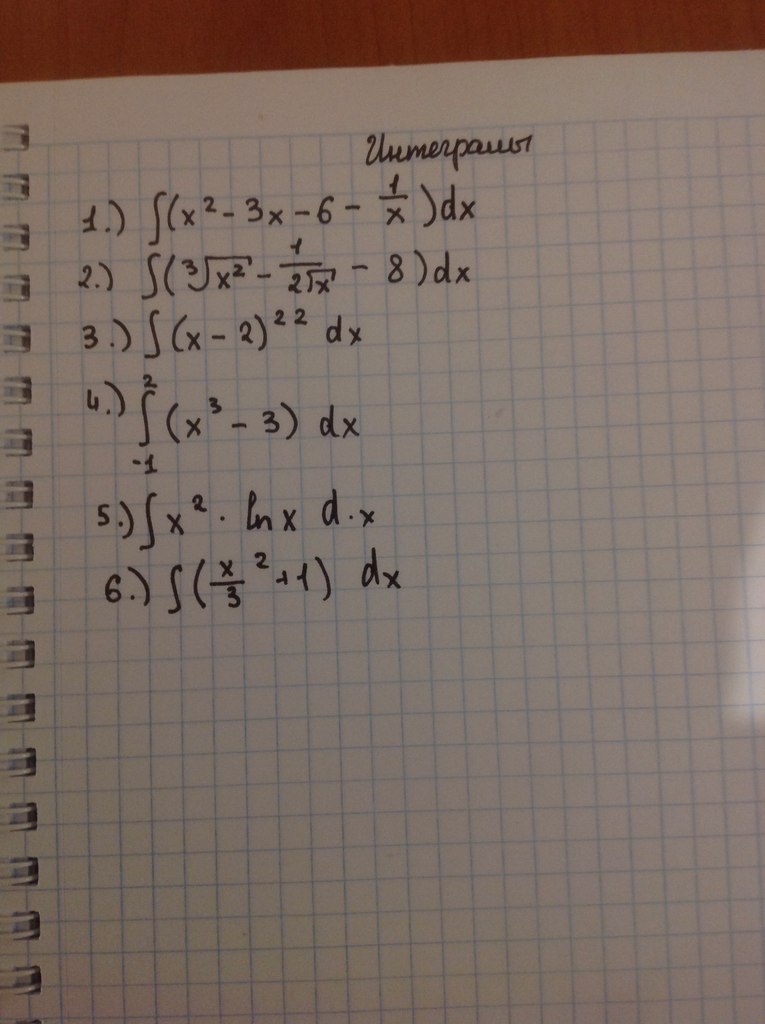 Интегралы
1.) ∫(x² - 3x - 6 - 1/x)dx
2.) ∫(∛x² - 1/(2√x) - 8)dx
3.) ∫(x - 2)²² dx
4.) ∫₋₁² (x³ - 3) dx
5.) ∫x² · ln x d·x
6.) ∫(x/3 ² + 1) dx